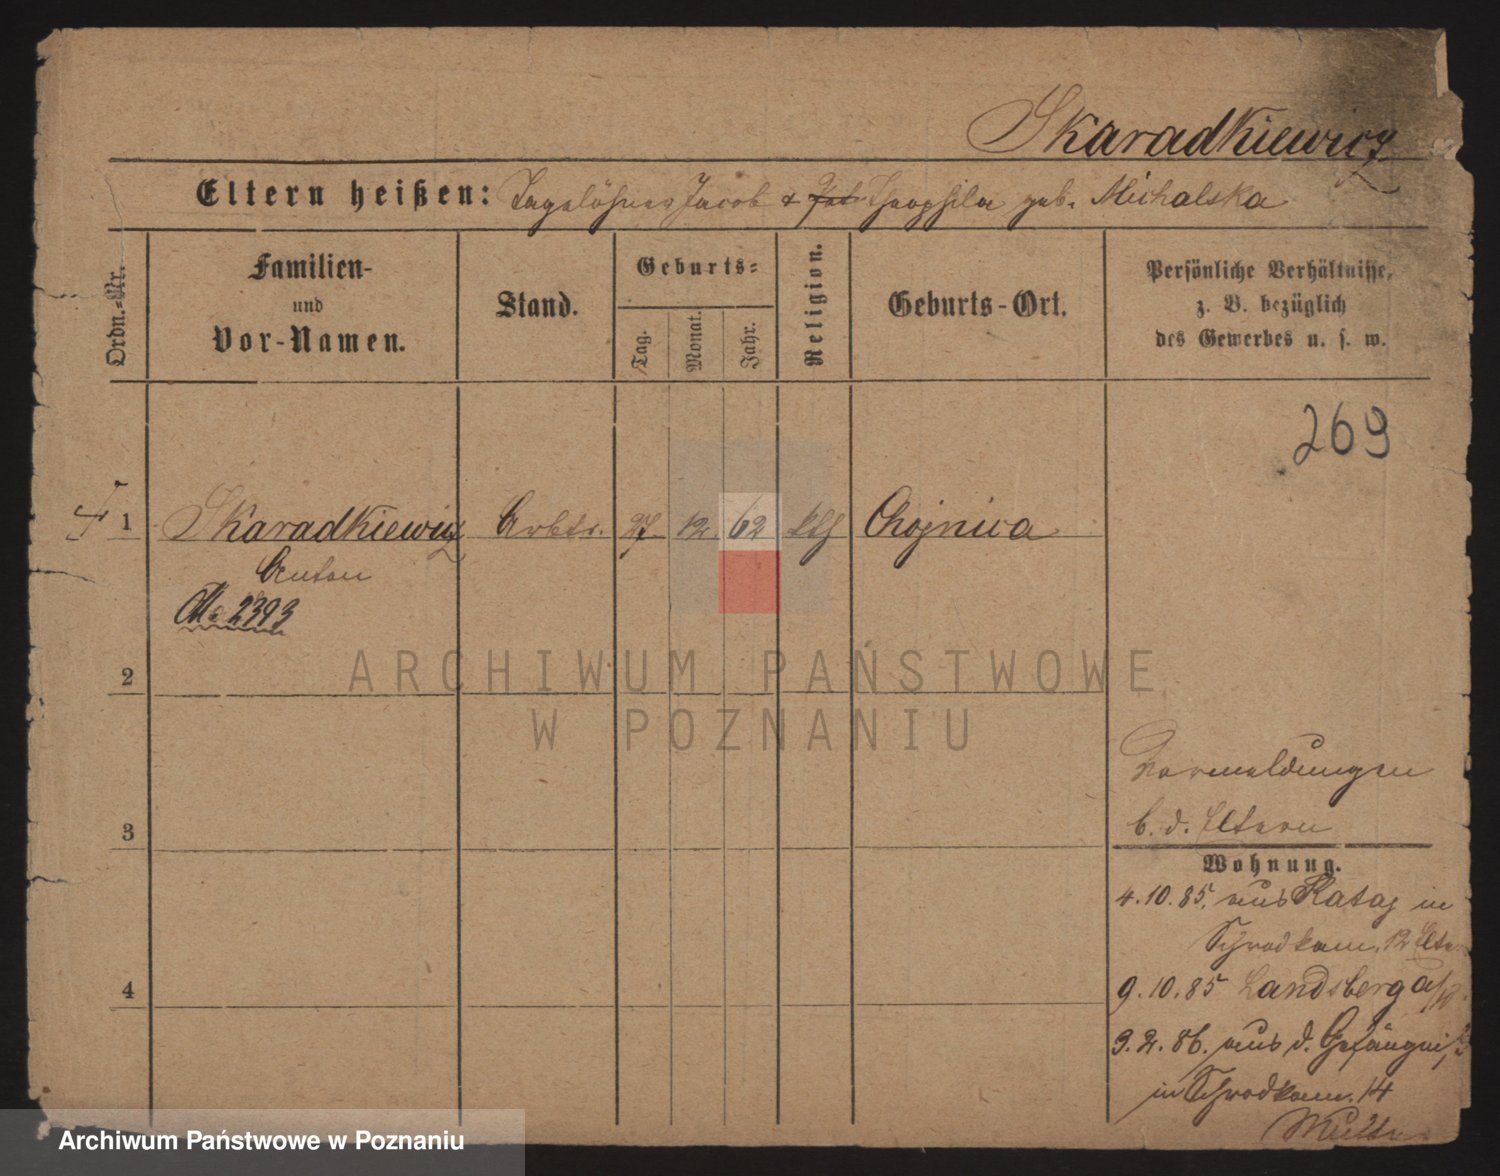 Skaradkiewicz
Eltern heißen: Tagelöhner Jacob & Theophila geb. Michalska
Ordn.-Nr.
Familien-
und
Vor-Namen.
Stand.
Geburts-
Tag.
Monat.
Jahr.
Religion.
Geburts-Ort.
Persönliche Verhältnisse,
z. B. bezüglich
des Gewerbes u. s. w.
269
1 Skaradkiewicz Arbtr. 27 12 62 kth Chojnica
Anton
2393
2
ARCHIWUM PAŃSTWOWE
W POZNANIU
Vormeldungen
b. d. Eltern
3
Wohnung.
4.10.85. aus Rataj in
Schrodkam. 12 Elt.
4
9.10.85 Landsberg a/W.
9.2.86. aus d. Gefängniß
in Schrodkam. 14
Mutter
Archiwum Państwowe w Poznaniu